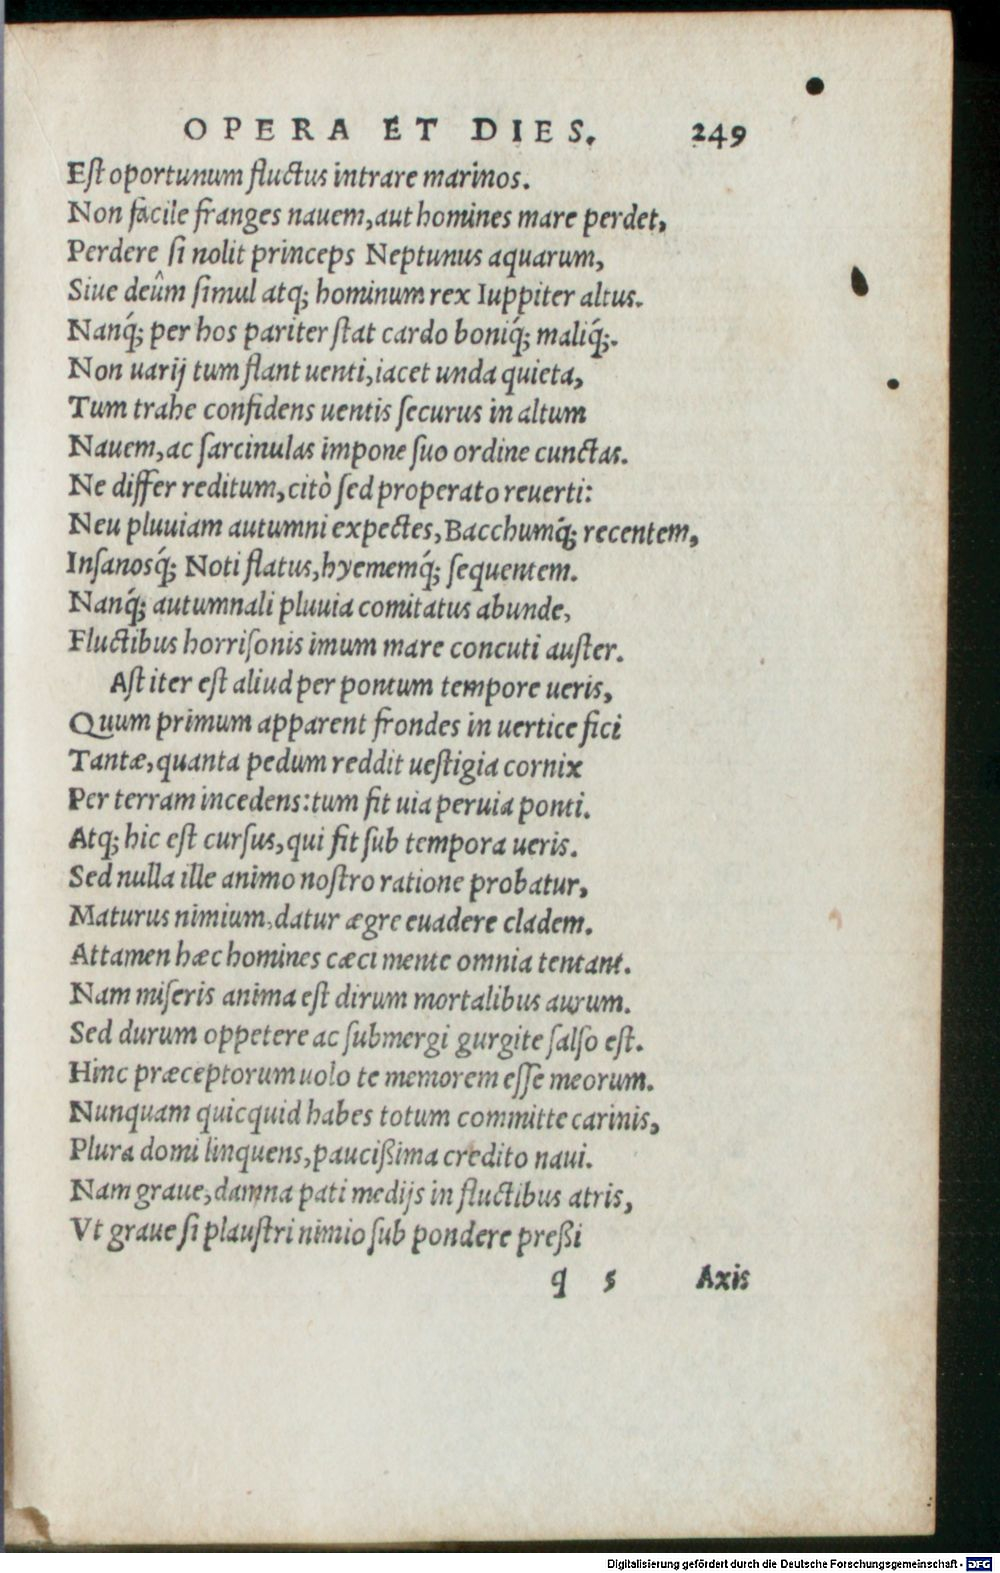 OPERA ET DIES. 249
Eſt oportunum fluctus intrare marinos.
Non facile franges nauem, aut homines mare perdet,
Perdere ſi nolit princeps Neptunus aquarum,
Siue deûm ſimul atq; hominum rex Iuppiter altus.
Nanq́; per hos pariter ſtat cardo boniq́; maliq́;.
Non uarij tum flant uenti, iacet unda quieta,
Tum trahe confidens uentis ſecurus in altum
Nauem, ac ſarcinulas impone ſuo ordine cunctas.
Ne differ reditum, citò ſed properato reuerti:
Neu pluuiam autumni expectes, Bacchumq́; recentem,
Inſanosq́; Noti flatus, hyememq́; ſequentem.
Nanq́; autumnali pluuia comitatus abunde,
Fluctibus horriſonis imum mare concuti auſter.
Aſt iter eſt aliud per pontum tempore ueris,
Quum primum apparent frondes in uertice fici
Tantæ, quanta pedum reddit ueſtigia cornix
Per terram incedens: tum fit uia peruia ponti.
Atq; hic eſt curſus, qui fit ſub tempora ueris.
Sed nulla ille animo noſtro ratione probatur,
Maturus nimium, datur ægre euadere cladem.
Attamen hæc homines cæci mente omnia tentant.
Nam miſeris anima eſt dirum mortalibus aurum.
Sed durum oppetere ac ſubmergi gurgite ſalſo eſt.
Hinc præceptorum uolo te memorem eſſe meorum.
Nunquam quicquid habes totum committe carinis,
Plura domi linquens, pauciſsima credito naui.
Nam graue, damna pati medijs in fluctibus atris,
Vt graue ſi plauſtri nimio ſub pondere preſsi
q 5 Axis
Digitalisierung gefördert durch die Deutsche Forschungsgemeinschaft - DFG